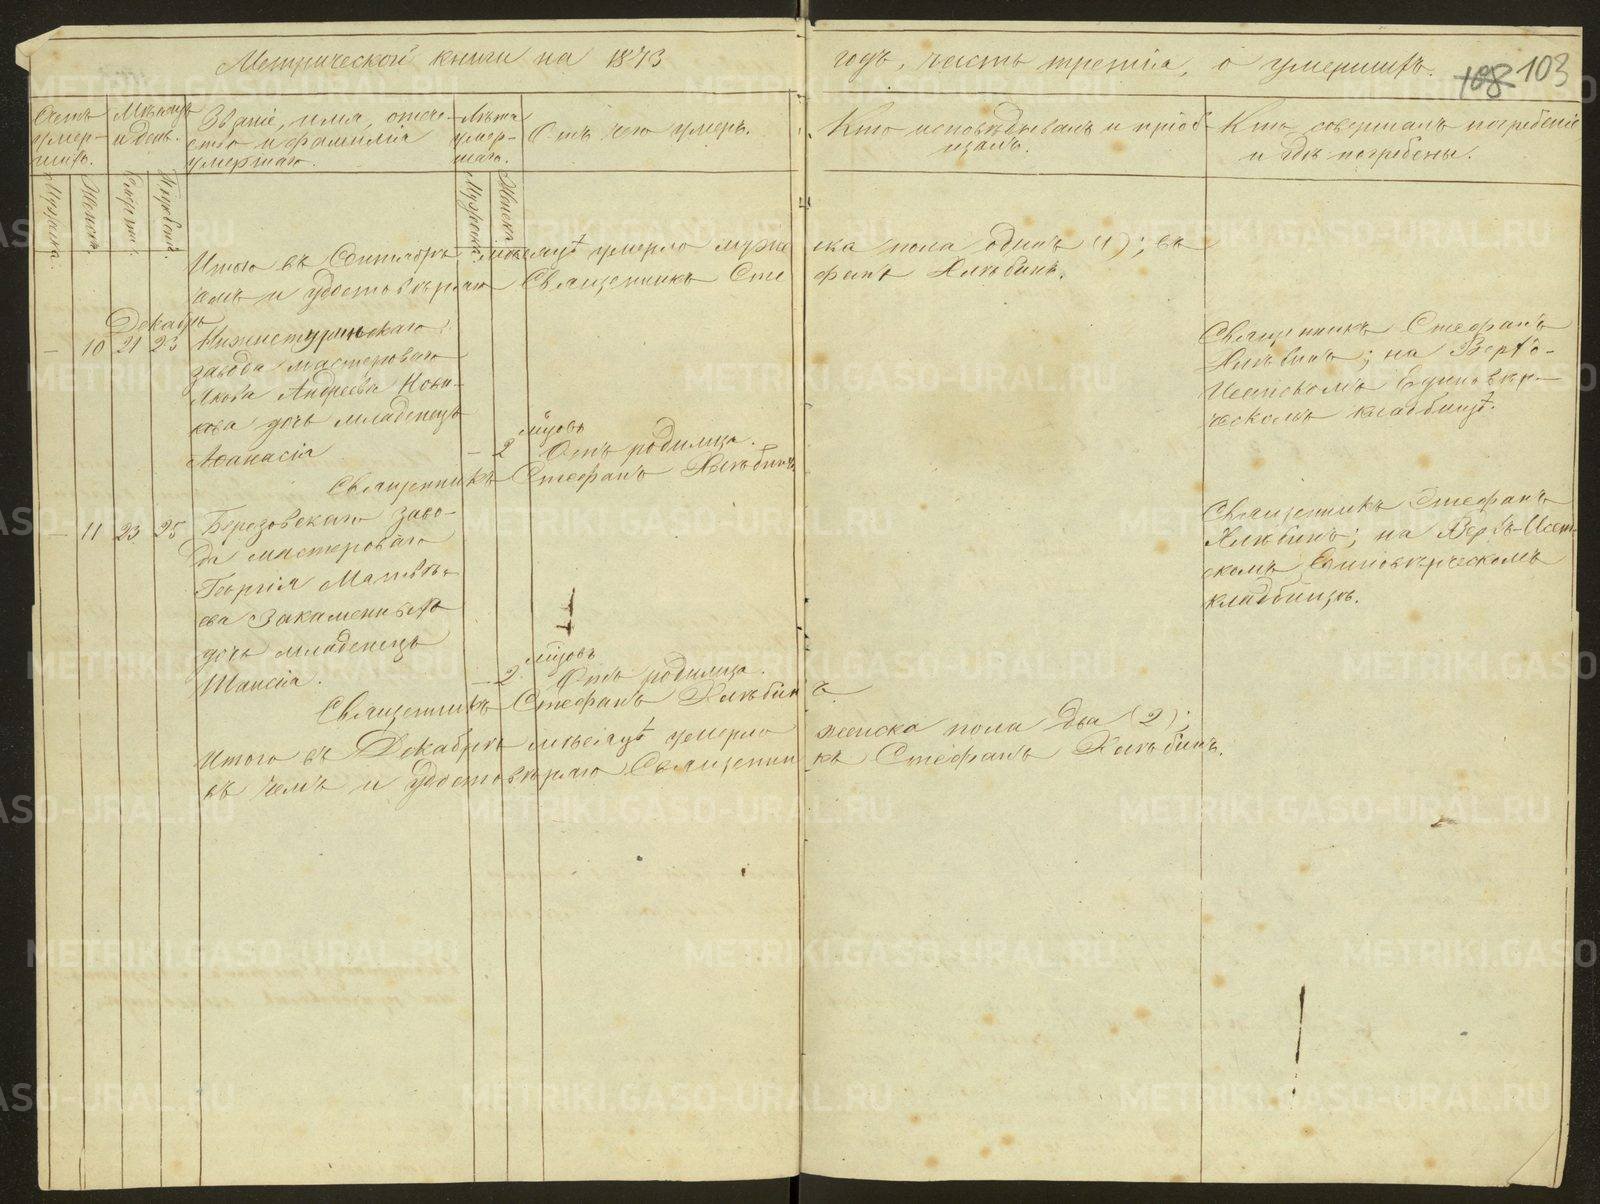 Метрической книги на 1873 годъ, часть третія, о умершихъ.
108 103
Счетъ умер-шихъ.
Мѣсяцъ и день.
Званіе, имя, отче-
ство и фамилія
умершаго.
Лѣта
умер-
шаго.
Отъ чего умеръ.
Кто исповѣдывалъ и пріоб-
щалъ.
Кто совершалъ погребеніе
и гдѣ погребены.
Мужска.
Женска.
Смерти.
Мужска.
Женска
Итого въ Сентябрѣ мѣсяцѣ умерло мужеска пола одинъ (1); въ
чемъ и удостовѣряю Священникъ Стефанъ Хлѣбинъ.
Декабрь
– 10 21 23 Нижнетуринскаго
завода мастероваго
Якова Андреева Нови-
кова дочь младенецъ
Аѳанасія
– 2 мѣсяцовъ
Отъ родимца.
Священникъ Стефанъ
Хлѣбинъ; на Верхъ-
Исетскомъ Единовѣр-
ческомъ кладбищѣ.
Священникъ Стефанъ Хлѣбинъ
– 11 23 25 Березовскаго заво-
да мастероваго
Георгія Матвѣ-
ева Закаменныхъ
дочь младенецъ
Таисія.
– 2 мѣсяцовъ
Отъ родимца.
Священникъ Стефанъ
Хлѣбинъ; на Верхъ-Исет-
скомъ Единовѣрческомъ
кладбищѣ.
Священникъ Стефанъ Хлѣбинъ
Итого въ Декабрѣ мѣсяцѣ умерло женска пола два (2);
въ чемъ и удостовѣряю Священникъ Стефанъ Хлѣбинъ.
METRIKI.GASO-URAL.RU